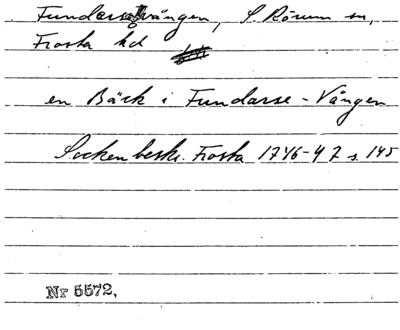 Fundarsevången, S. Rörum sn,
Frosta hd
en Bäck i Fundarse-Vången
Sockenbeskr. Frosta 1746-47 s. 145
Nr 5572.